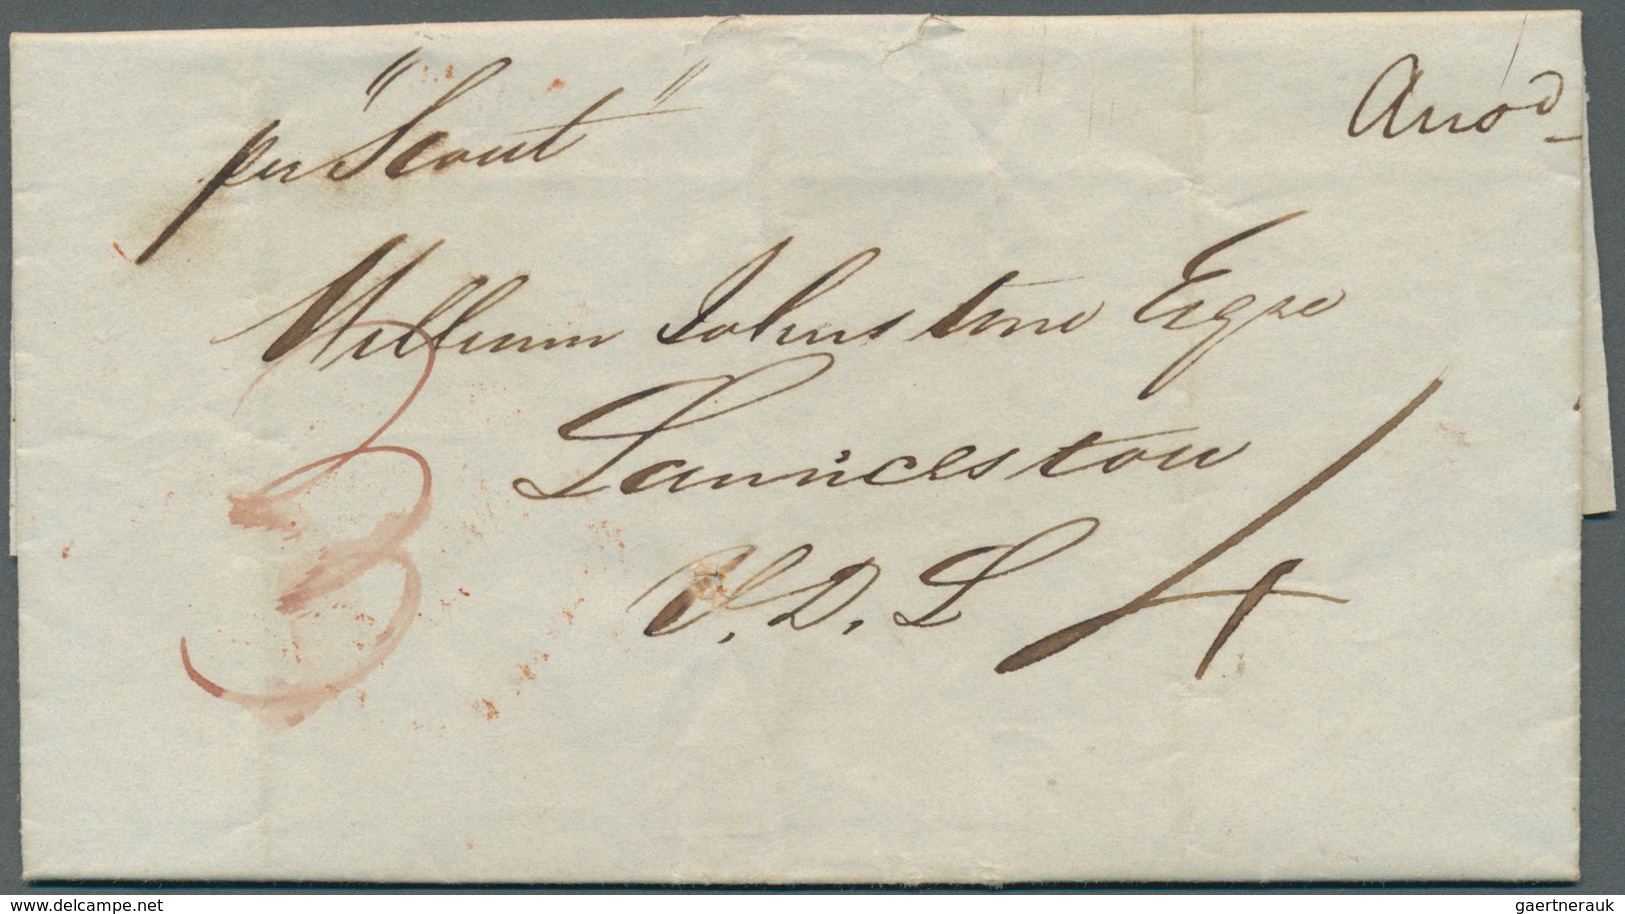 per "Scout"
Ansd
William Johnstone Esqre
Launceston
V. D. L
3
4
delcampe.net
gaertnerauk